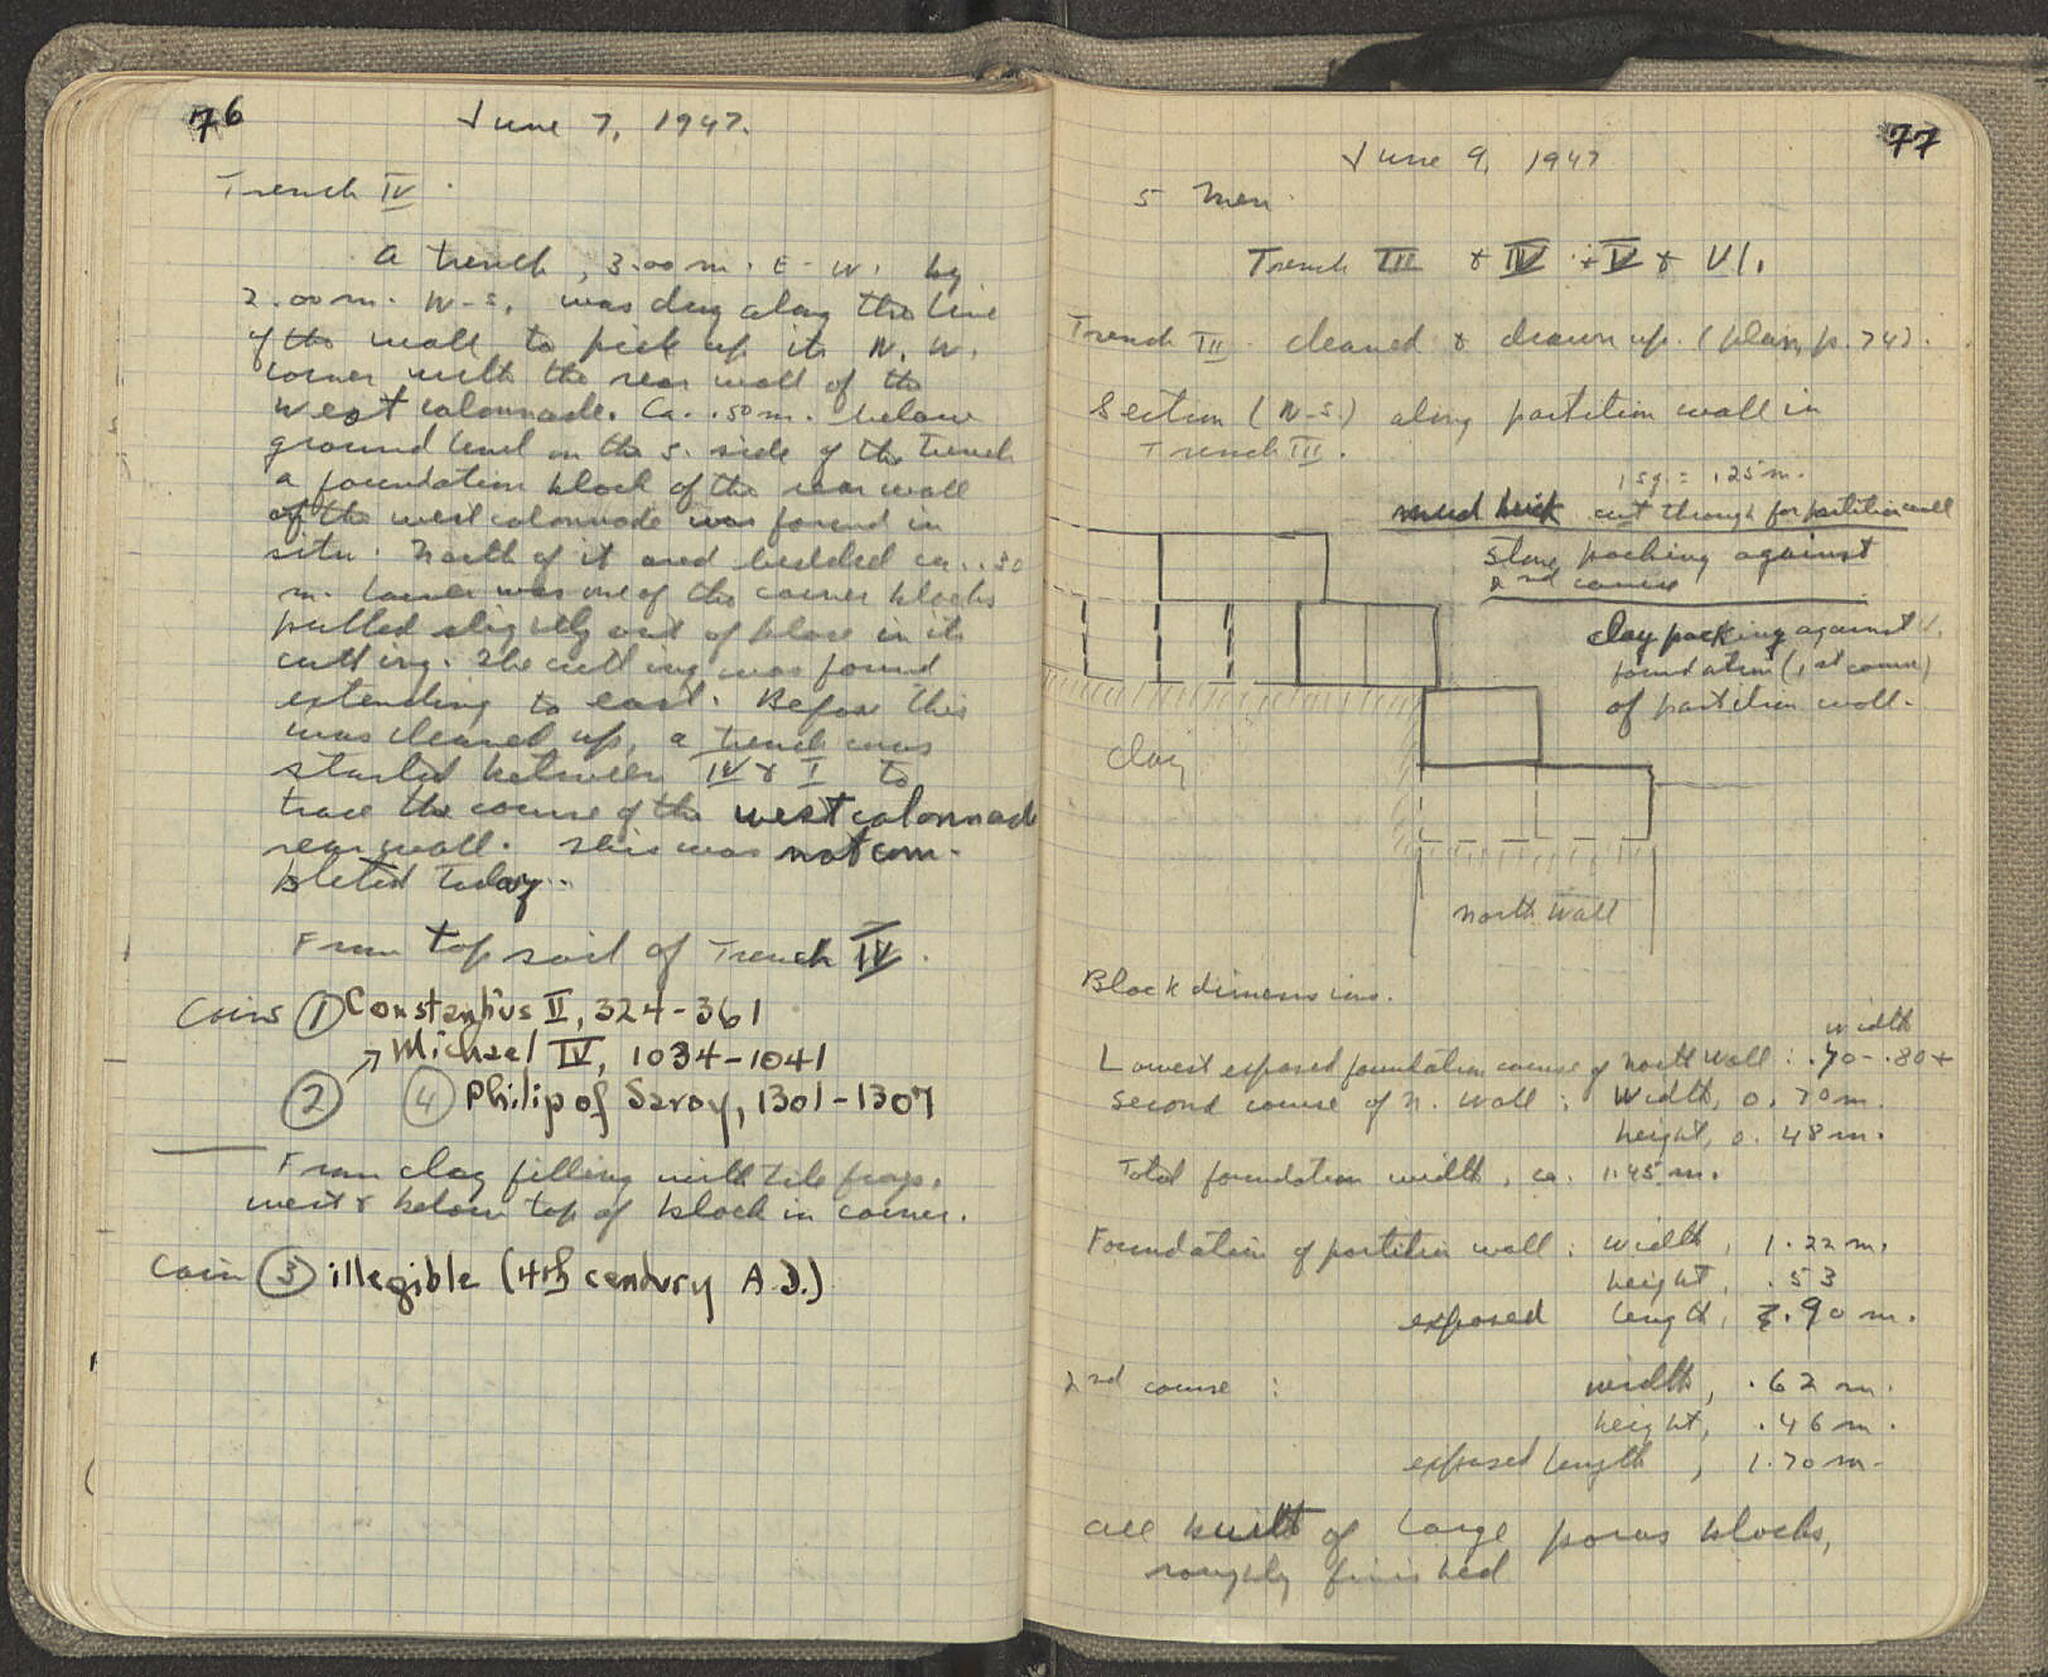 76
June 7, 1947.
Trench IV.
A trench, 3.00 m. E-W. by
2.00 m. N-S. was dug along the line
of the wall to pick up its N.W.
corner with the rear wall of the
west colonnade. Ca. .50 m. below
ground level on the S. side of the trench
a foundation block of the rear wall
of the west colonnade was found in
situ. North of it and bedded ca. .30
m. lower was one of the corner blocks
pulled slightly out of place in its
cutting. The cutting was found
extending to east. Before this
was cleared up, a trench was
started between IV & I to
trace the course of the west colonnade
rear wall. This was not com-
pleted today.
From top soil of Trench IV.
Coins ① Constantius II, 324-361
→ Michael IV, 1034-1041
② ④ Philip of Savoy, 1301-1307
From clay filling with tile frags.
west & below top of block in corner.
Coin ③ illegible (4th century A.D.)
77
June 9, 1947
5 men
Trench III & IV + V & VI.
Trench III cleaned & drawn up. (plan, p. 74).
Section (N-S.) along partition wall in
Trench III.
1 sq. = .25 m.
mud brick cut through for partition wall
stone packing against
2nd course
clay packing against
foundation (1st course)
of partition wall.
clay
north wall
Block dimensions.
width
Lowest exposed foundation course of north wall: .70-.80+
Second course of N. wall: Width, 0.70 m.
height, 0.48 m.
Total foundation width, ca. 1.45 m.
Foundation of partition wall: width, 1.22 m.
height, .53
exposed length, .90 m.
2nd course: width, .62 m.
height, .46 m.
exposed length, 1.70 m.
all built of large poros blocks,
roughly finished